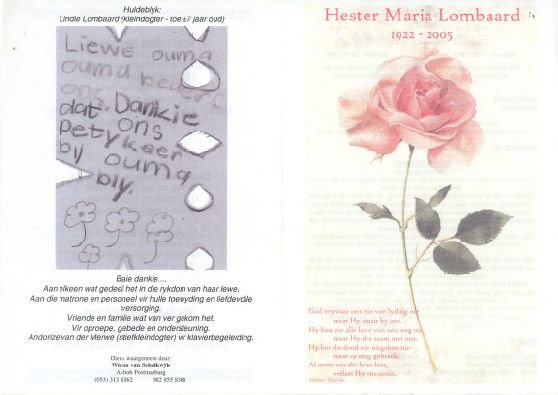 Huldeblyk:
Lindie Lombaard (kleindogter - toe ±7 jaar oud)
Liewe ouma
ouma bederf
ons. Dankie
dat ons
Partykeer
by ouma
bly.
Baie danke....
Aan elkeen wat gedeel het in die rykdom van haar lewe.
Aan die matrone en personeel vir hulle toewyding en liefdevolle
versorging.
Vriende en familie wat van ver gekom het.
Vir oproepe, gebede en ondersteuning.
van der Merwe (stiefkleindogter) vir klavierbegeleiding.
Diens waargeneem deur:
Wiena van Schalkwyk
Avbob Postmasburg
(053) 313 1362 082 855 8381
Hester Maria Lombaard
1922 - 2005
God vrywaar ons nie van lyding nie
maar Hy staan by ons.
Hy hou nie alle laste van ons weg nie
maar Hy dra saam met ons.
Hy het die dood nie uitgeban nie
maar sy mag gebreek.
Al moet ons die lewe laat,
verlaat Hy ons nooit.
-Helmut Thielicke